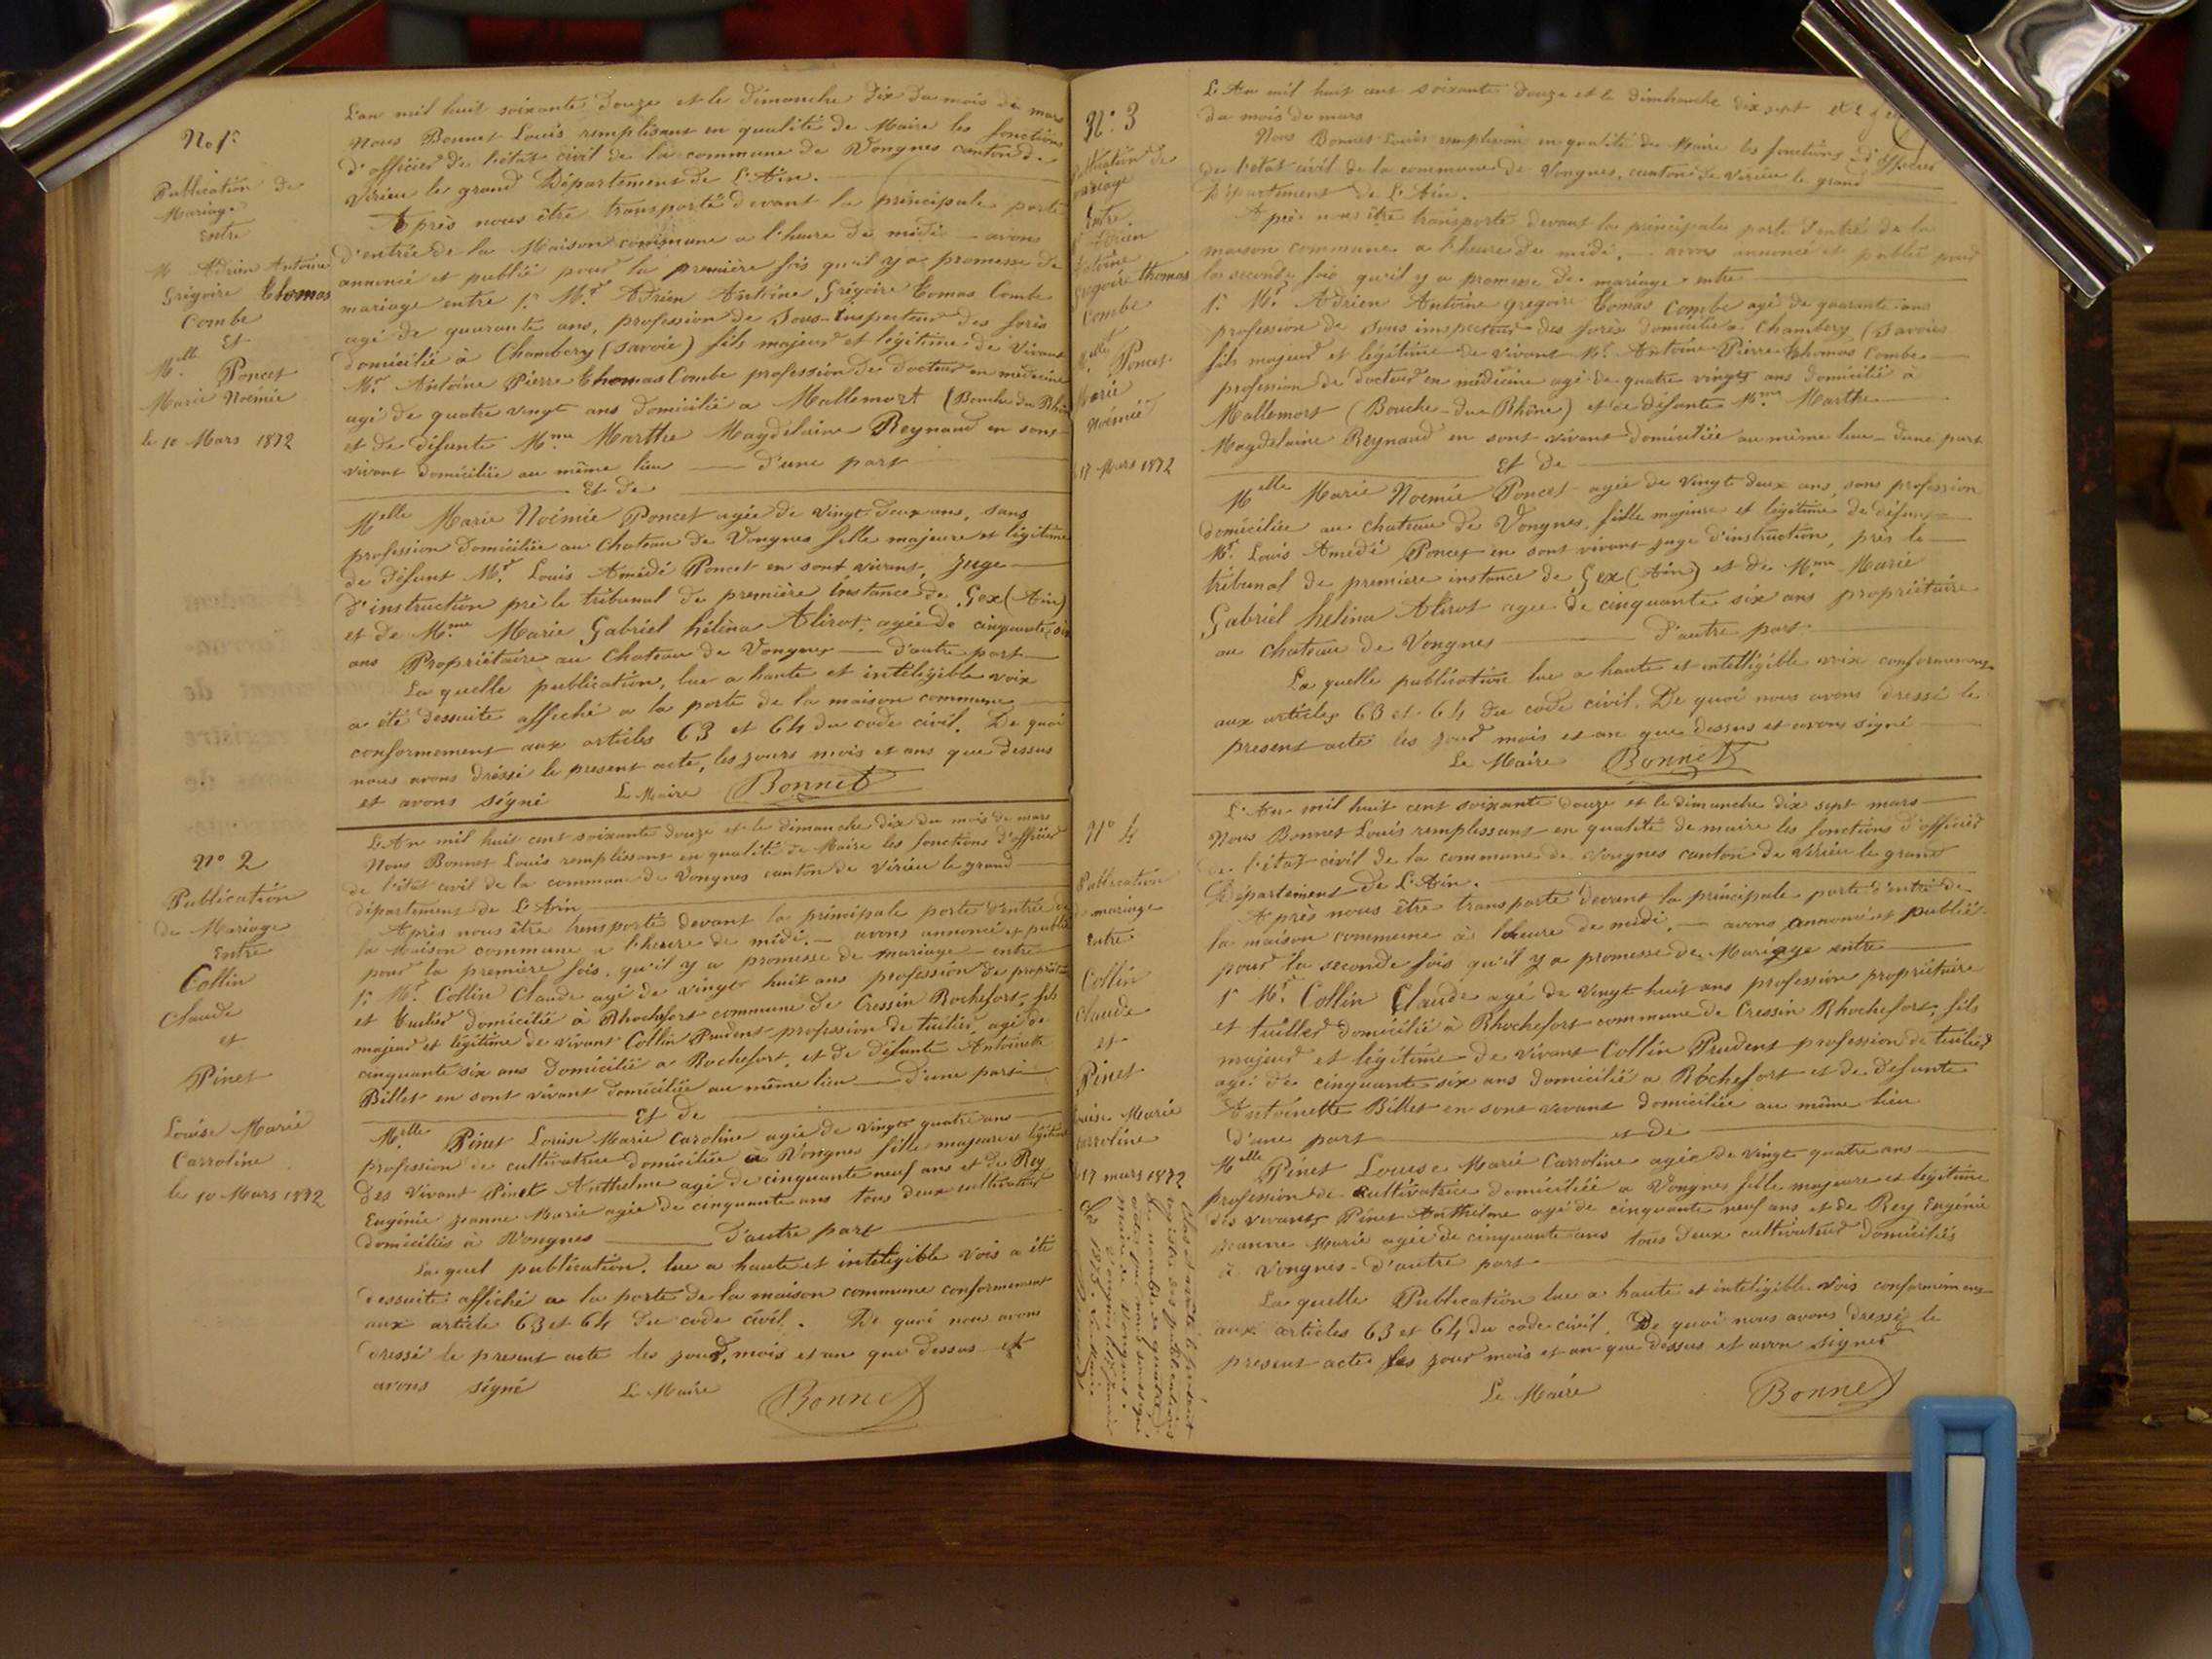 No 1er
Publication de
Mariage
Entre
M Adrien Antoine
Grégoire Thomas
Combe
Et
Melle Poncet
Marie Noémie
le 10 Mars 1872
L'an mil huit soixante douze et le dimanche dix du mois de mars
Nous Bonnet Louis remplisant en qualité de Maire les fonctions
d'officier de l'état civil de la commune de Vongnes canton de
Virieu le grand Département de L'Ain.
Après nous être transporté devant la principale porte
d'entrée de la Maison commune a l'heure de midi — avons
annoncé et publié pour la première fois qu'il y a promesse de
mariage entre 1er Mr Adrien Antoine Grégoire Tomas Combe
agé de quarante ans, profession de Sous-Inspecteur des forès
domicilié à Chambery (Savoie) fils majeur et légitime de vivant
Mr Antoine Pierre Thomas Combe profession de docteur en médecine
agé de quatre vingt ans domicilié a Mallemort (Bouche du Rhône
et de défunte Mme Marthe Magdelaine Reynaud en sont
vivant domiciliée au même lieu — d'une part
Et de
Melle Marie Noémie Poncet agée de vingt deux ans, sans
profession domiciliée au Chateau de Vongnes fille majeure et légitime
de défunt Mr Louis Amédé Poncet en sont vivant, Juge
d'instruction près le tribunal de première instance de Gex (Ain)
et de Mme Marie Gabriel hélèna Alirot, agée de cinquante six
ans Propriétaire au Chateau de Vongnes — d'autre part —
La quelle publication, lue a haute et inteligible voix
a été dessuite affiché a la porte de la maison commune
conformement aux articles 63 et 64 du code civil. De quoi
nous avons dréssé le present acte, les jours mois et ans que dessus
et avons signé Le Maire Bonnet
No 2
Publication
de Mariage
Entre
Collin
Claude
et
Pinet
Louise Marie
Carroline
le 10 Mars 1872
L'An mil huit cent soixante douze et le dimanche dix du mois de mars
Nous Bonnet Louis remplissant en qualité de Maire les fonctions d'officier
de l'état civil de la commune de Vongnes canton de Virieu le grand
département de L'Ain
Après nous être transporté devant la principale porte d'entrée de
la Maison commune a l'heure de midi. — avons annoncé et publié
pour la première fois, qu'il y a promesse de mariage — entre
1er Mr Collin Claude agé de vingt huit ans profession de propriétaire
et tuilier domicilié à Rhochefort commune de Cressin Rochefort, fils
majeur et légitime de vivant Collin Prudent profession de tuilier, agé de
cinquante six ans domicilié a Rochefort, et de défunte Antoinette
Billet en sont vivant domiciliée au même lieu — d'une part
Et de
Melle Pinet Louise Marie Caroline agée de vingt quatre ans
profession de cultivatrice domiciliée a Vongnes fille majeure et légitime
des vivant Pinet Anthelme agé de cinquante neuf ans et de Rey
Eugénie Jeanne Marie agée de cinquante ans tous deux cultivateur
domiciliés à Vongnes — d'autre part
La quel publication, lue a haute et inteligible vois a été
dessuite affiché a la porte de la maison commune conformement
aux article 63 et 64 du code civil. De quoi nous avons
dressé le present acte les jour, mois et an que dessus et
avons signé Le Maire Bonnet
No 3
mariage
Entre
Adrien
Antoine
Grégoire thomas
Combe
Melle Poncet
Marie
Noémie
17 Mars 1872
L'An mil huit cent soixante douze et le dimhanche dix sept
du mois de mars
Nous Bonnet Louis remplissan en qualité de Maire les fonctions d'officier
de l'état civil de la commune de Vongnes, canton de Virieu le grand
Département de L'Ain.
Après nous être transporté devant la principale porte d'entré de la
maison commune a l'heure de midi, — avons annoncé et publié pour
la seconde fois qu'il y a promesse de mariage entre
1er Mr Adrien Antoine Gregoire Tomas Combe agé de quarante ans
profession de sous inspecteur des forès domicilié a Chambery (Savoie
fils majeur et légitime de vivant Mr Antoine Pierre Thomas Combe
profession de docteur en médicine agé de quatre vingts ans domicilié à
Mallemort (Bouche-du-Rhône) et de défunte Mme Marthe
Magdelaine Reynaud en sont vivant domiciliée au même lieu — d'une part
Et de
Melle Marie Noémie Poncet agée de vingt deux ans, sans profession
domiciliée au chateau de Vongnes, fille majeure et légitime de défunt
Mr Louis Amedé Poncet en sont vivant juge d'instruction, près le
tribunal de première instance de Gex (Ain) et de Mme Marie
Gabriel helèna Alirot agée de cinquante six ans propriétaire
au chateau de Vongnes — d'autre part
La quelle publication lue a haute et intelligible voix conformement
aux articles 63 et 64 du code civil. De quoi nous avons dressé le
present acte les jour mois et an que dessus et avons signé
Le Maire Bonnet
No 4
Publication
de mariage
Entre
Collin
Claude
et
Pinet
Louise Marie
Carroline
17 mars 1872
Clos et arrêté le présent
registre des publications
au nombre de quatre
actes par nous soussigné
maire de Vongnes.
L'An mil huit cent soixante douze et le dimanche dix sept mars
Nous Bonnet Louis remplissant en qualité de maire les fonctions d'officier
de l'état civil de la commune de Vongnes canton de Virieu le grand
Département de L'Ain.
Après nous être transporté devant la principale porte d'entré de
la maison commune à l'heure de midi, — avons annoncé et publié
pour la seconde fois qu'il y a promesse de Mariage entre
1er Mr Collin Claude agé de vingt huit ans profession propriétaire
et tuiller domicilié à Rhochefort commune de Cressin Rhochefort, fils
majeur et légitime de vivant Collin Prudent profession de tuilier
agé de cinquante six ans domicilié a Rochefort et de défunte
Antoinette Billet en sont vivant domiciliée au même lieu
d'une part et de
Melle Pinet Louise Marie Carroline agée de vingt quatre ans
profession de cultivatrice domiciliée a Vongnes fille majeure et légitime
des vivants Pinet Anthelme agé de cinquante neuf ans et de Rey Eugénie
Jeanne Marie agée de cinquante ans tous deux cultivateur domiciliés
à Vongnes - d'autre part
La quelle Publication lue a haute et inteligible vois conformement
aux articles 63 et 64 du code civil. De quoi nous avons dressé le
present acte les jour mois et an que dessus et avon signer
Le Maire Bonnet